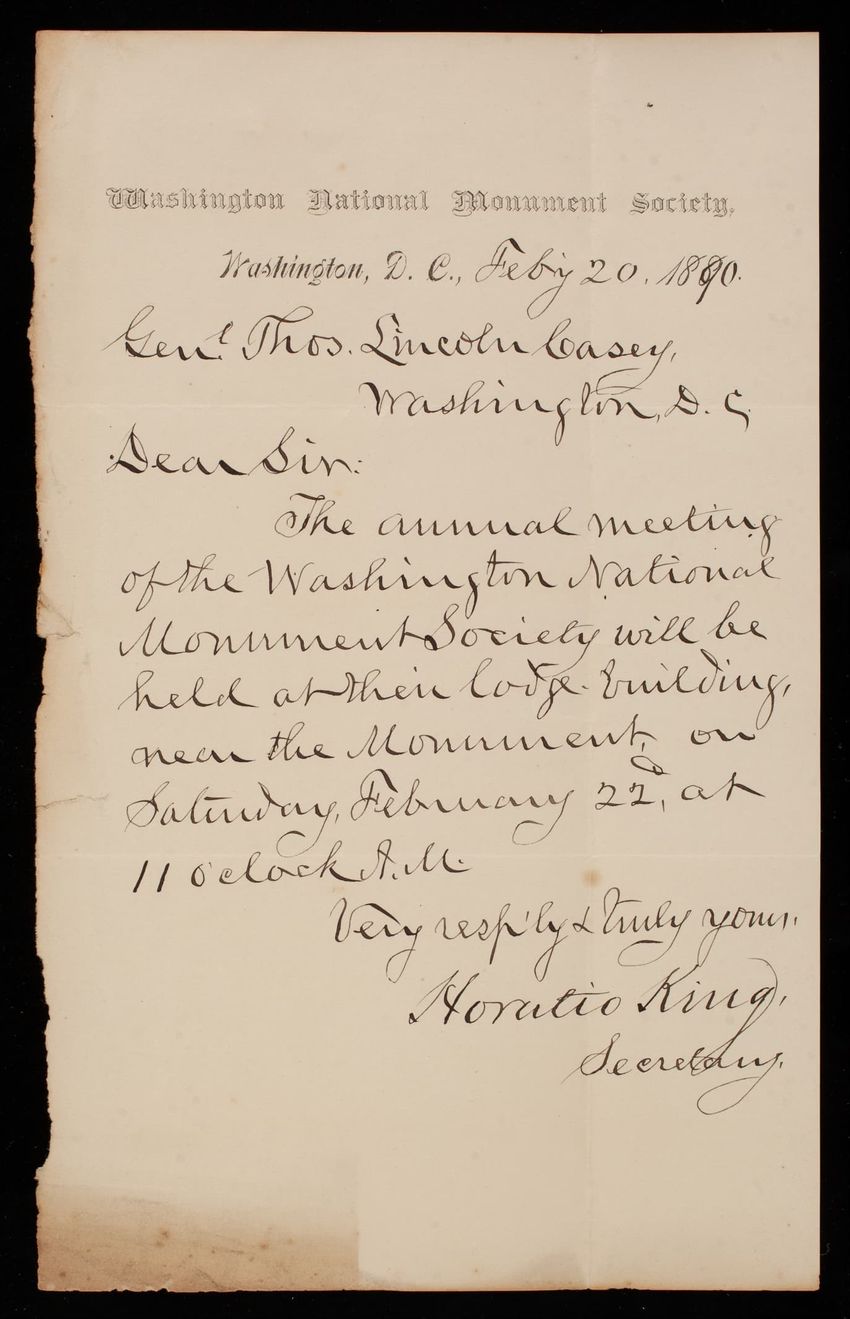 Washington National Monument Society,
Washington, D. C., Feb'y 20, 1890.
Genl. Thos. Lincoln Casey,
Washington, D. C.
Dear Sir:
The annual meeting
of the Washington National
Monument Society will be
held at their lodge-building,
near the Monument, on
Saturday, February 22d, at
11 o'clock A.M.
Very resp'ly & truly yours,
Horatio King,
Secretary.